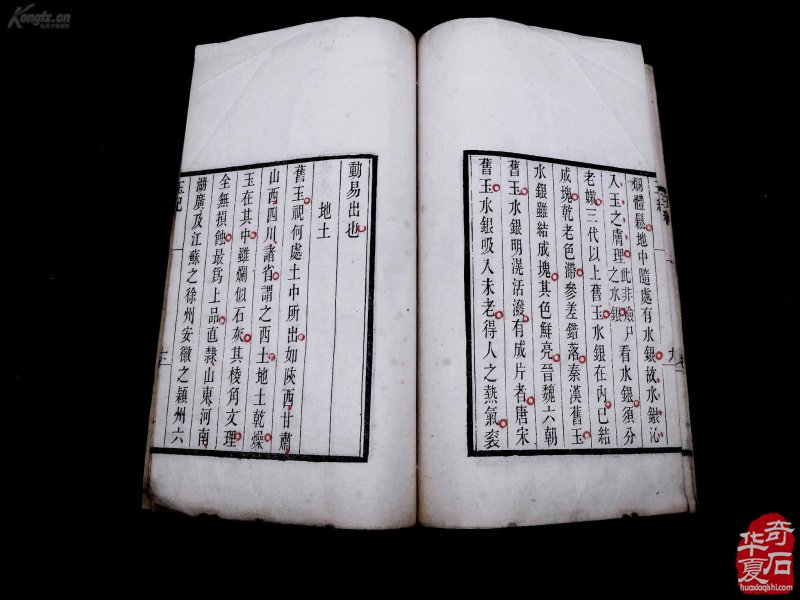 爛體鬆地中隨處有水銀故水銀沁
入玉之膚理此非殮尸之水銀看水銀須分
老嫩三代以上舊玉水銀在內已結
成塊乾老色滯參差錯落秦漢舊玉
水銀雖結成塊其色鮮亮晉魏六朝
舊玉水銀明滉活潑有成片者唐宋
舊玉水銀吸入未老得人之熱氣衮
動易出也
地土
舊玉視何處土中所出如陝西甘肅
山西四川諸省謂之西土地土乾燥
玉在其中雖爛似石灰其棱角文理
全無損蝕最爲上品直隸山東河南
湖廣及江蘇之徐州安徽之潁州六
玉記
Kongfz.cn
華夏奇石
huaxiaqishi.com